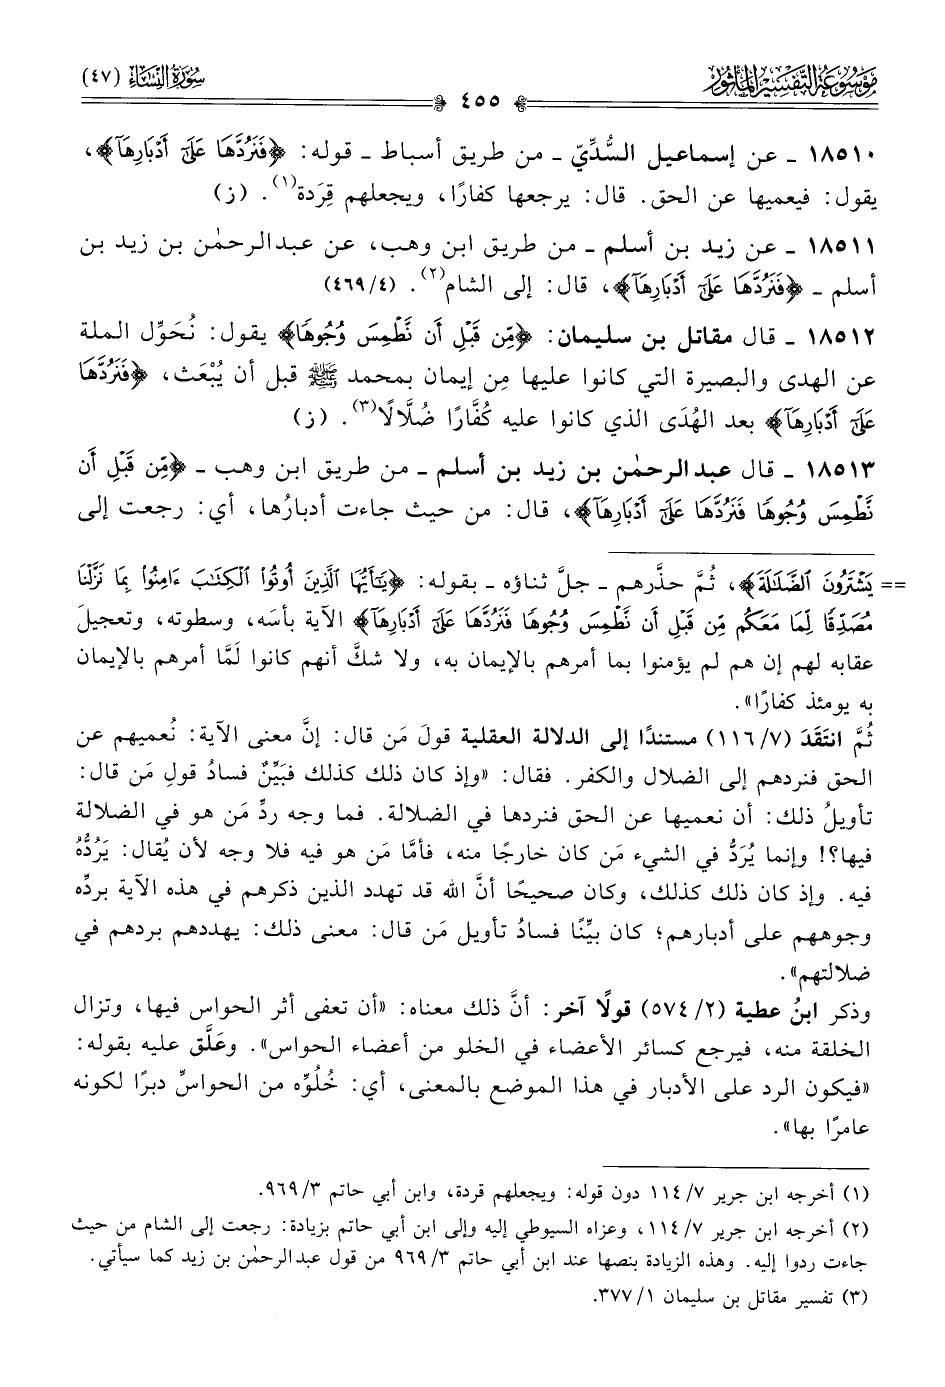 موسوعة التفسير المأثور
سورة النساء (٤٧)
٤٥٥
١٨٥١٠ ـ عن إسماعيل السُّدِّيّ ـ من طريق أسباط ـ قوله: ﴿فَنَرُدَّهَا عَلَىٰٓ أَدْبَارِهَآ﴾،
يقول: فيعميها عن الحق. قال: يرجعها كفارًا، ويجعلهم قِرَدة(١). (ز)
١٨٥١١ ـ عن زيد بن أسلم ـ من طريق ابن وهب، عن عبدالرحمٰن بن زيد بن
أسلم ـ ﴿فَنَرُدَّهَا عَلَىٰٓ أَدْبَارِهَآ﴾، قال: إلى الشام(٢). (٤٦٩/٤)
١٨٥١٢ ـ قال مقاتل بن سليمان: ﴿مِّن قَبْلِ أَن نَّطْمِسَ وُجُوهًا﴾ يقول: نُحَوِّل الملة
عن الهدى والبصيرة التي كانوا عليها مِن إيمان بمحمد ﷺ قبل أن يُبْعَث، ﴿فَنَرُدَّهَا
عَلَىٰٓ أَدْبَارِهَآ﴾ بعد الهُدَى الذي كانوا عليه كُفَّارًا ضُلَّالًا(٣). (ز)
١٨٥١٣ ـ قال عبدالرحمٰن بن زيد بن أسلم ـ من طريق ابن وهب ـ ﴿مِّن قَبْلِ أَن
نَّطْمِسَ وُجُوهًا فَنَرُدَّهَا عَلَىٰٓ أَدْبَارِهَآ﴾، قال: من حيث جاءت أدبارُها، أي: رجعت إلى
== يَشْتَرُونَ ٱلضَّلَٰلَةَ﴾، ثُمَّ حذَّرهم ـ جلَّ ثناؤه ـ بقوله: ﴿يَٰٓأَيُّهَا ٱلَّذِينَ أُوتُوا۟ ٱلْكِتَٰبَ ءَامِنُوا۟ بِمَا نَزَّلْنَا
مُصَدِّقًا لِّمَا مَعَكُم مِّن قَبْلِ أَن نَّطْمِسَ وُجُوهًا فَنَرُدَّهَا عَلَىٰٓ أَدْبَارِهَآ﴾ الآية بأسَه، وسطوته، وتعجيلَ
عقابه لهم إن هم لم يؤمنوا بما أمرهم بالإيمان به، ولا شكَّ أنهم كانوا لَمَّا أمرهم بالإيمان
به يومئذ كفارًا».
ثُمَّ انتَقَدَ (١١٦/٧) مستندًا إلى الدلالة العقلية قولَ مَن قال: إنَّ معنى الآية: نُعميهم عن
الحق فنردهم إلى الضلال والكفر. فقال: «وإذ كان ذلك كذلك فبَيِّنٌ فسادُ قولِ مَن قال:
تأويلُ ذلك: أن نعميها عن الحق فنردها في الضلالة. فما وجه ردِّ مَن هو في الضلالة
فيها؟! وإنما يُرَدُّ في الشيء مَن كان خارجًا منه، فأمَّا مَن هو فيه فلا وجه لأن يُقال: يَرُدُّهُ
فيه. وإذ كان ذلك كذلك، وكان صحيحًا أنَّ الله قد تهدد الذين ذكرهم في هذه الآية بردِّه
وجوههم على أدبارهم؛ كان بيِّنًا فسادُ تأويل مَن قال: معنى ذلك: يهددهم بردهم في
ضلالتهم».
وذكر ابنُ عطية (٥٧٤/٢) قولًا آخر: أنَّ ذلك معناه: «أن تعفى أثر الحواس فيها، وتزال
الخلقة منه، فيرجع كسائر الأعضاء في الخلو من أعضاء الحواس». وعَلَّق عليه بقوله:
«فيكون الرد على الأدبار في هذا الموضع بالمعنى، أي: خُلُوِّه من الحواسِّ دبرًا لكونه
عامرًا بها».
(١) أخرجه ابن جرير ١١٤/٧ دون قوله: ويجعلهم قردة، وابن أبي حاتم ٩٦٩/٣.
(٢) أخرجه ابن جرير ١١٤/٧، وعزاه السيوطي إليه وإلى ابن أبي حاتم بزيادة: رجعت إلى الشام من حيث
جاءت ردوا إليه. وهذه الزيادة بنصها عند ابن أبي حاتم ٩٦٩/٣ من قول عبدالرحمٰن بن زيد كما سيأتي.
(٣) تفسير مقاتل بن سليمان ٣٧٧/١.